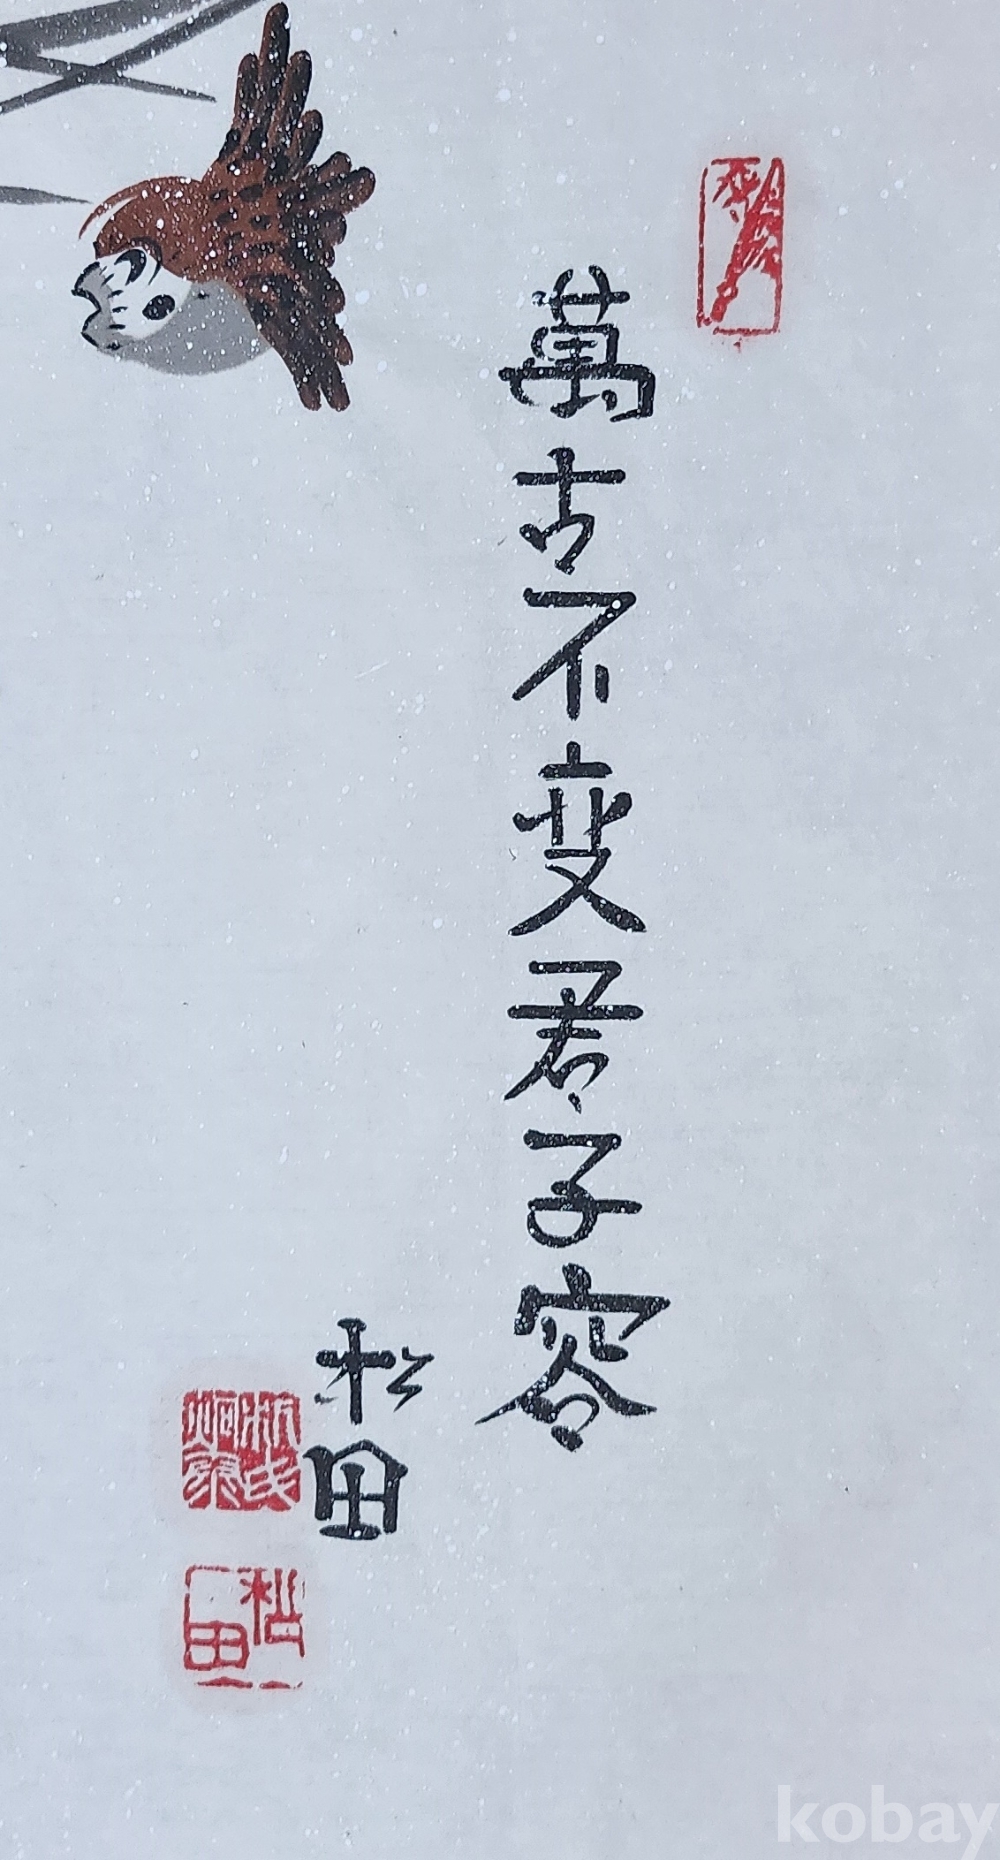 萬古不変君子容
松田
松田
kobay